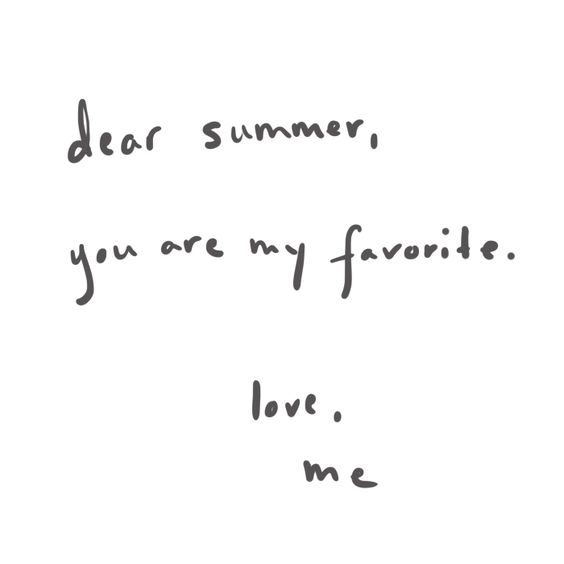 dear summer,
you are my favorite.
love,
me